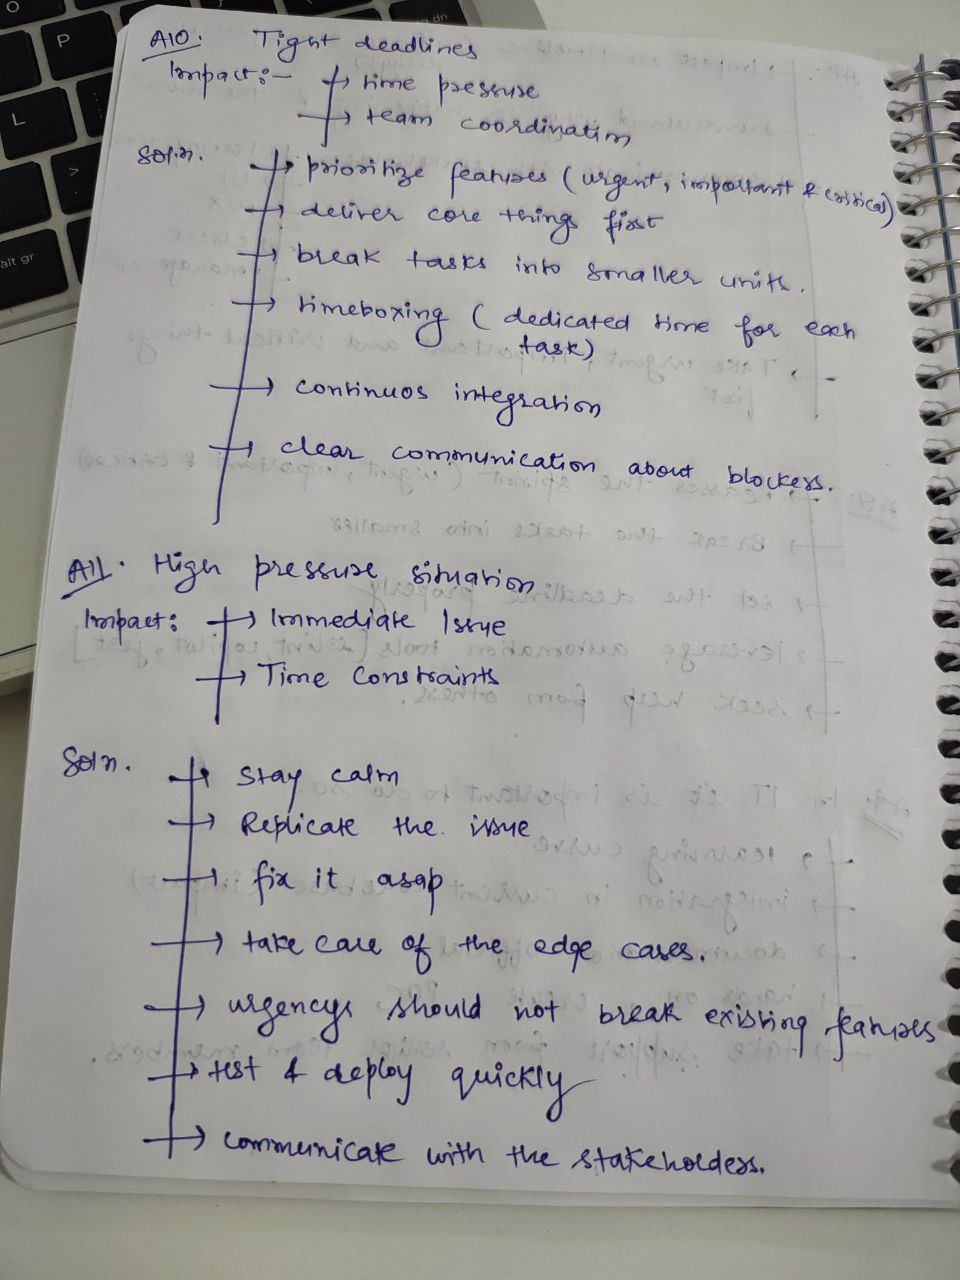 A10. Tight deadlines
Impact:- → time pressure
→ team coordination
Soln. → prioritize features (urgent, important & critical)
→ deliver core things first
→ break tasks into smaller units.
→ timeboxing ( dedicated time for each
task)
→ continuos integration
→ clear communication about blockers.
A11. High pressure situation
Impact: → Immediate Issue
→ Time constraints
Soln. → Stay calm
→ Replicate the issue
→ fix it asap
→ take care of the edge cases.
→ urgencys should not break existing features
→ test & deploy quickly
→ communicate with the stakeholders.
P
L
>
alt gr